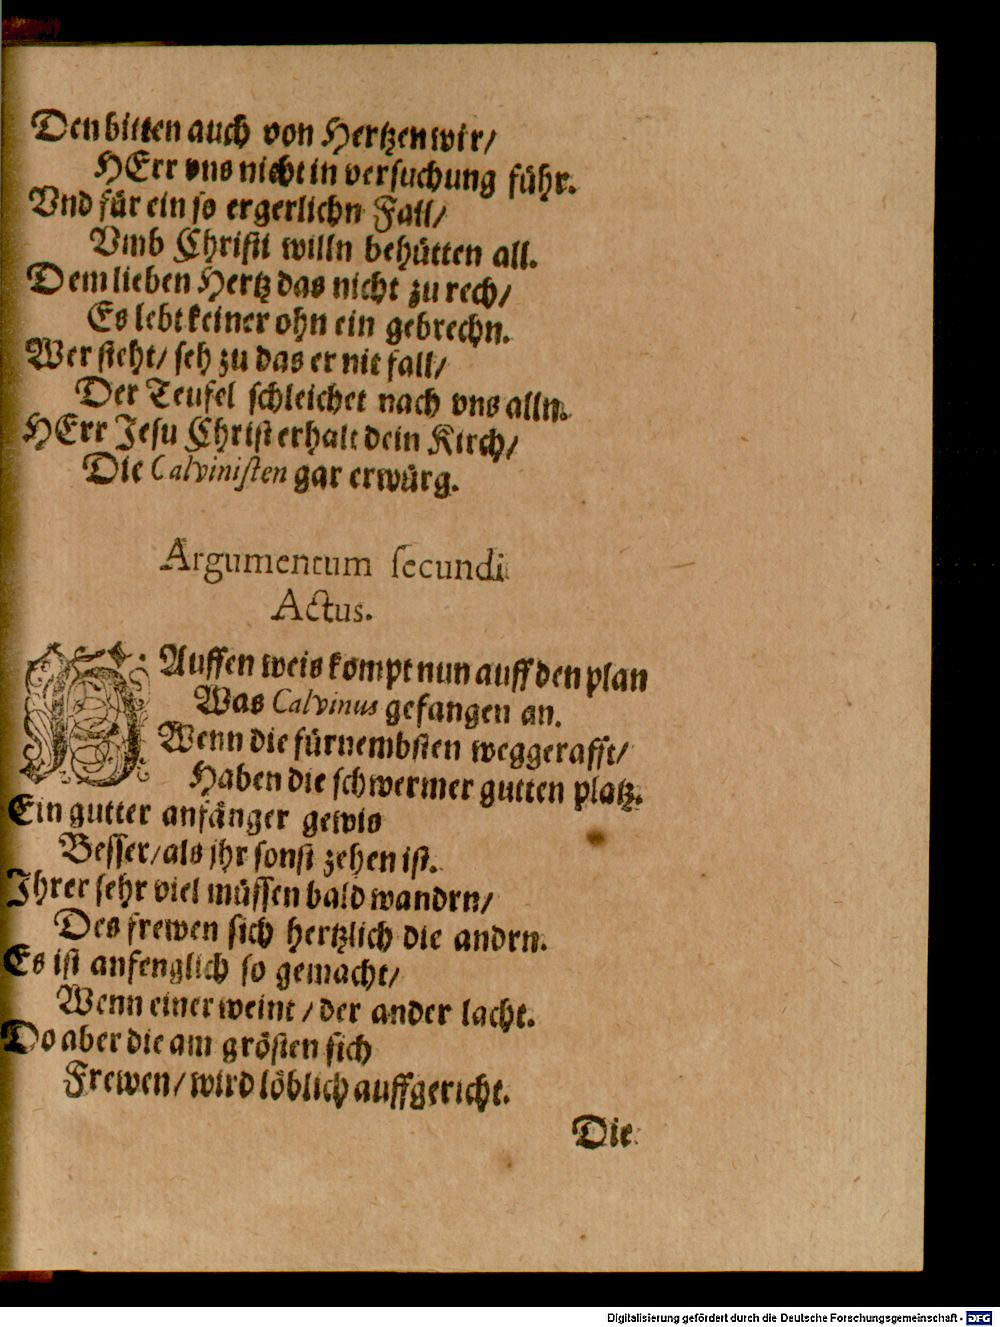 Den bitten auch von Hertzen wir/
HErr vns nicht in versuchung führ.
Vnd für ein so ergerlichn Fall/
Vmb Christi willn behütten all.
Dem lieben Hertz das nicht zu rech/
Es lebt keiner ohn ein gebrechn.
Wer sieht/ seh zu das er nit fall/
Der Teufel schleichet nach vns alln.
HErr Jesu Christ erhalt dein Kirch/
Die Calvinisten gar erwürg.
Argumentum secundi
Actus.
HAuffen weis kompt nun auff den plan
Was Calvinus gefangen an.
Wenn die fürnembsten weggerafft/
Haben die schwermer gutten platz.
Ein gutter anfänger gewis
Besser/ als jhr sonst zehen ist.
Jhrer sehr viel müssen bald wandrn/
Des frewen sich hertzlich die andrn.
Es ist anfenglich so gemacht/
Wenn einer weint / der ander lacht.
Do aber die am grösten sich
Frewen/ wird löblich auffgericht.
Die
Digitalisierung gefördert durch die Deutsche Forschungsgemeinschaft - DFG